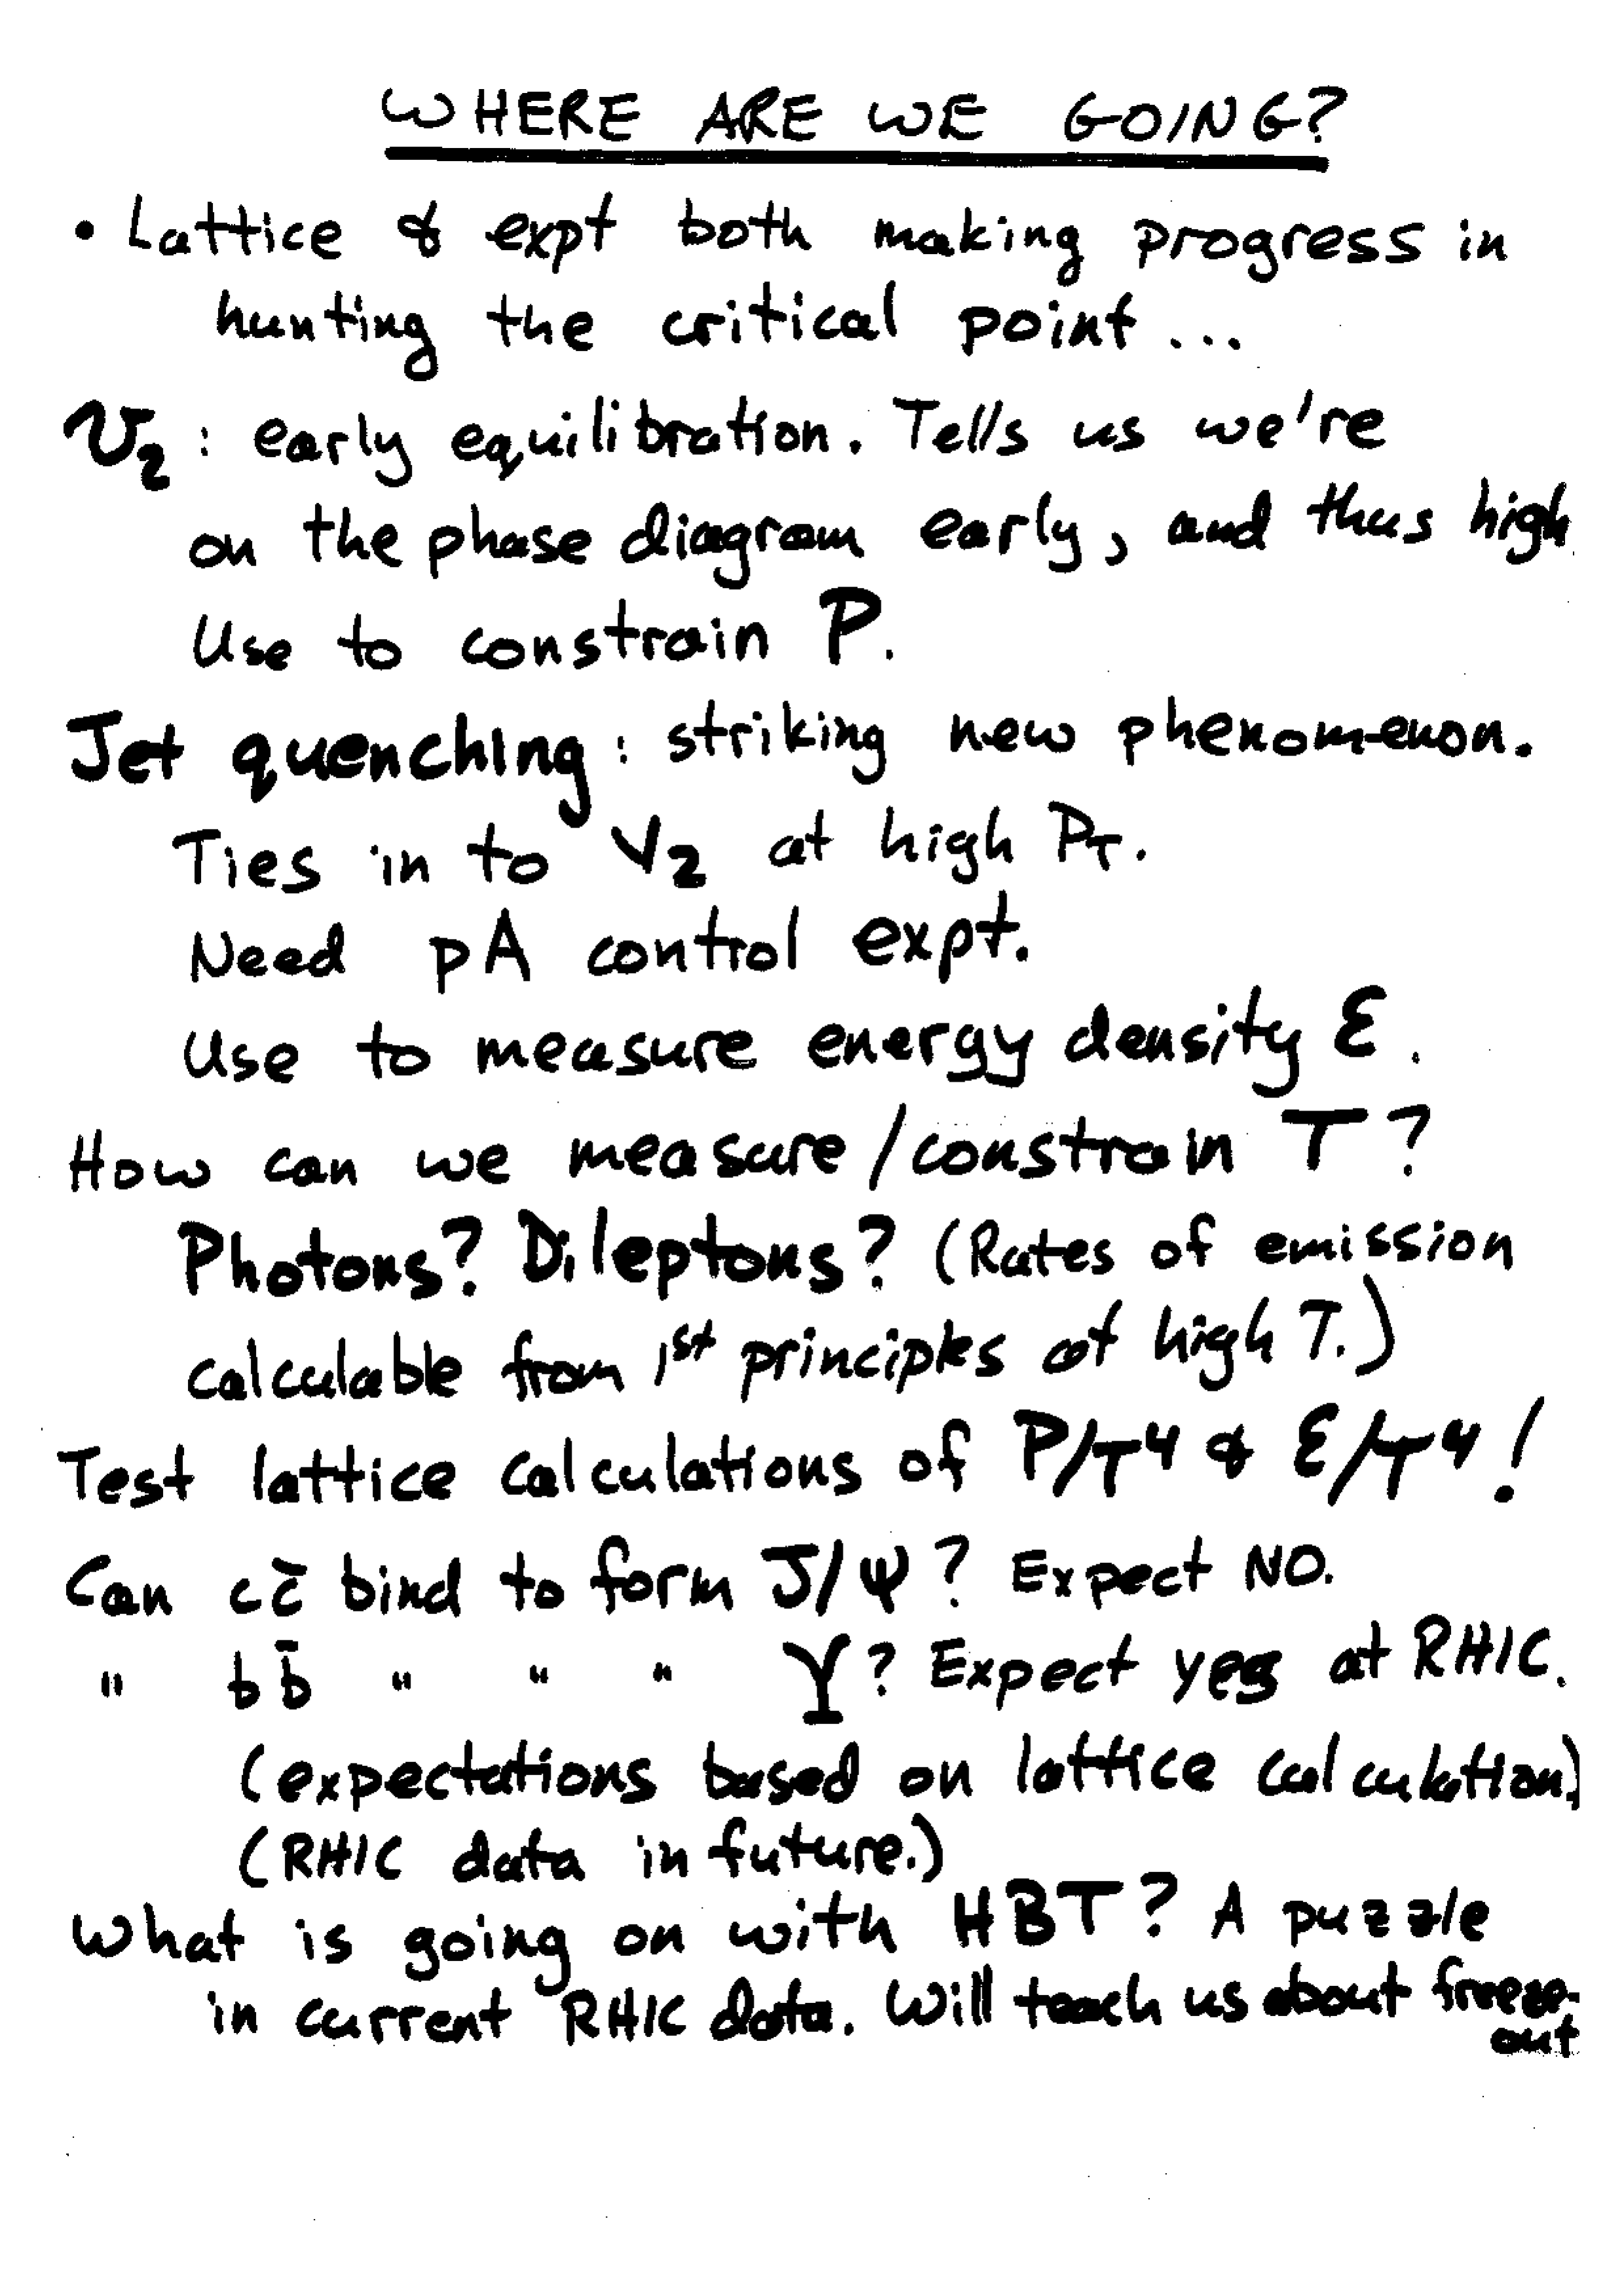 WHERE ARE WE GOING?
• Lattice & expt both making progress in
hunting the critical point ...
v₂ : early equilibration. Tells us we're
on the phase diagram early, and thus high
Use to constrain P.
Jet quenching : striking new phenomenon.
Ties in to v₂ at high P_T.
Need pA control expt.
Use to measure energy density ε.
How can we measure/constrain T?
Photons? Dileptons? (Rates of emission
calculable from 1st principles at high T.)
Test lattice calculations of P/T⁴ & ε/T⁴!
Can cc̄ bind to form J/ψ? Expect NO.
" bb̄ " " " Υ? Expect yes at RHIC.
(expectations based on lattice calculation.)
(RHIC data in future.)
What is going on with HBT? A puzzle
in current RHIC data. Will teach us about freeze-
out